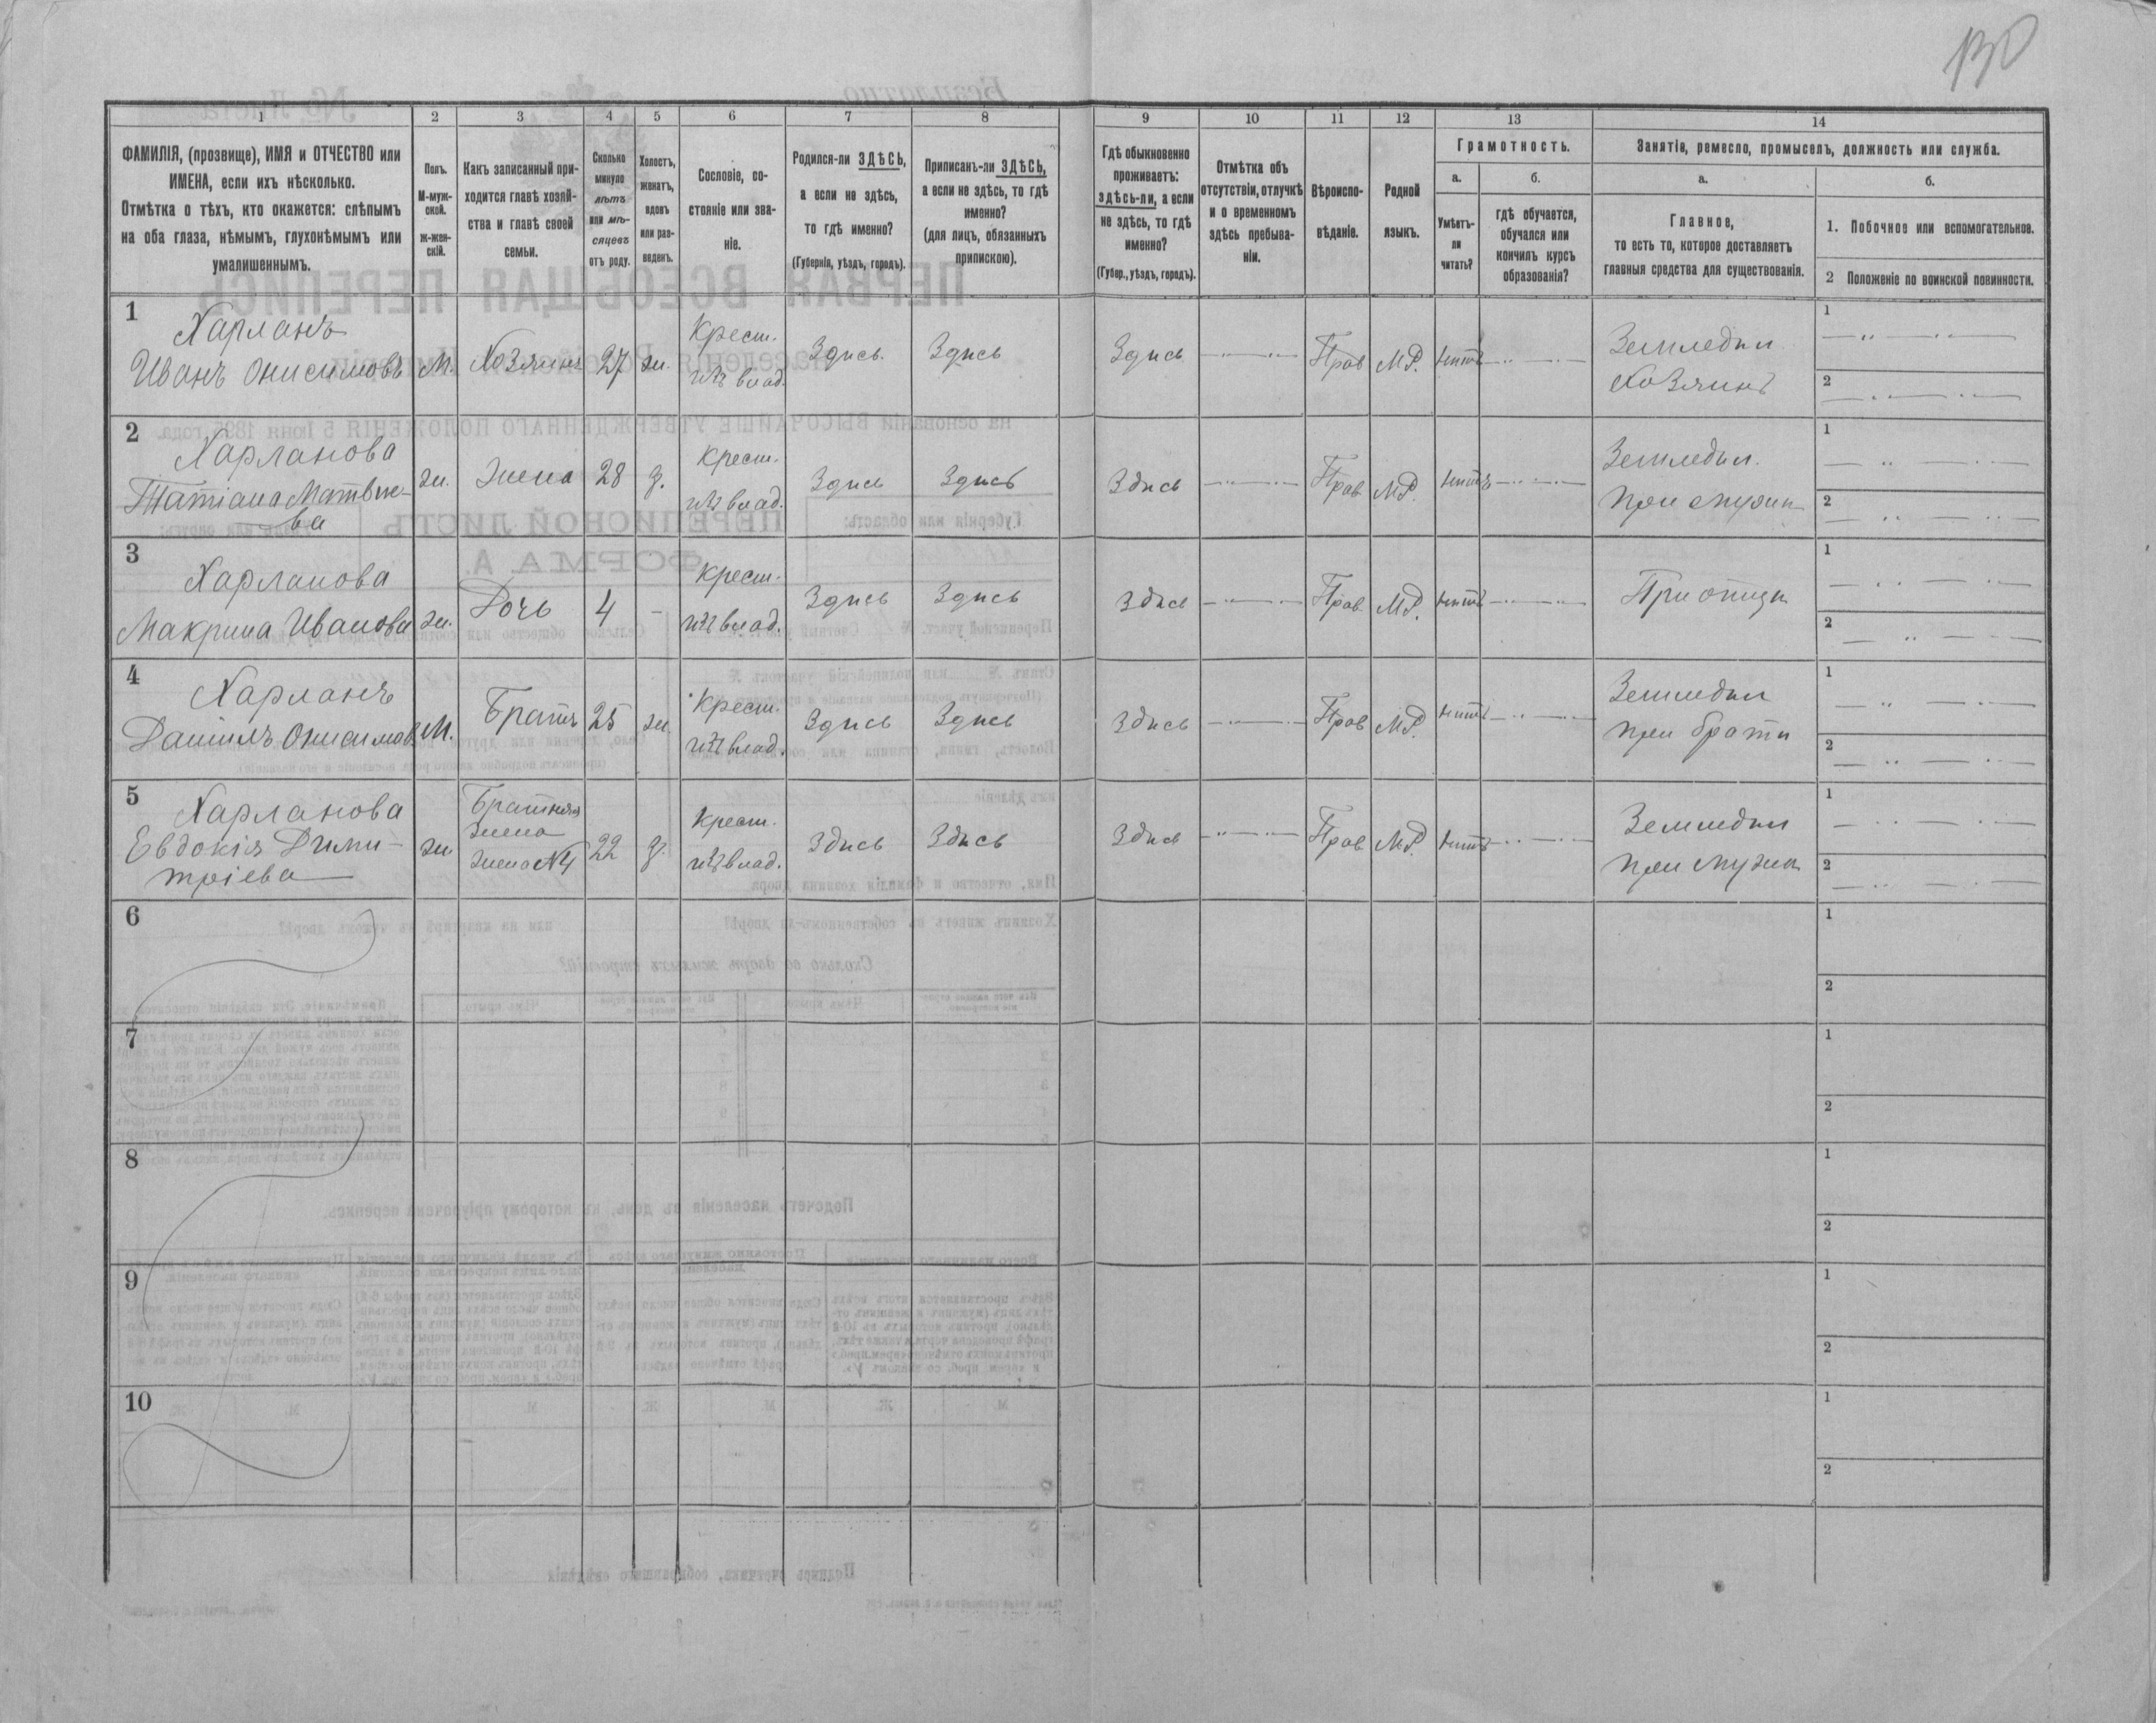 130
1 2 3 4 5 6 7 8 9 10 11 12 13 14
ФАМИЛІЯ, (прозвище), ИМЯ и ОТЧЕСТВО или
ИМЕНА, если ихъ нѣсколько.
Отмѣтка о тѣхъ, кто окажется: слѣпымъ
на оба глаза, нѣмымъ, глухонѣмымъ или
умалишеннымъ.
Полъ.
М-муж-
ской.
Ж-жен-
скій.
Какъ записанный при-
ходится главѣ хозяй-
ства и главѣ своей
семьи.
Сколько
минуло
лѣтъ
или мѣ-
сяцевъ
отъ роду.
Холостъ,
женатъ,
вдовъ
или раз-
веденъ.
Сословіе, со-
стояніе или зва-
ніе.
Родился-ли ЗДѢСЬ,
а если не здѣсь,
то гдѣ именно?
(Губернія, уѣздъ, городъ).
Приписанъ-ли ЗДѢСЬ,
а если не здѣсь, то гдѣ
именно?
(для лицъ, обязанныхъ
припискою).
Гдѣ обыкновенно
проживаетъ:
здѣсь-ли, а если
не здѣсь, то гдѣ
именно?
(Губер., уѣздъ, городъ).
Отмѣтка объ
отсутствіи, отлучкѣ
и о временномъ
здѣсь пребыва-
ніи.
Вѣроиспо-
вѣданіе.
Родной
языкъ.
Грамотность.
а.
Умѣетъ-
ли
читать?
б.
гдѣ обучается,
обучался или
кончилъ курсъ
образованія?
Занятіе, ремесло, промыселъ, должность или служба.
а.
Главное,
то есть то, которое доставляетъ
главныя средства для существованія.
б.
1. Побочное или вспомогательное.
2 Положеніе по воинской повинности.
1
Харланъ
Иванъ Онисимовъ
М.
Хозяинъ
27
ж.
Крест.
изъ влад.
Здѣсь
Здѣсь
Здѣсь
Прав
МР.
нѣтъ
Земледѣл
Хозяинъ
1
2
2
Харланова
Татіана Матвѣе-
ва
ж.
Жена
28
з.
Крест.
изъ влад.
Здѣсь
Здѣсь
Здѣсь
Прав
МР.
нѣтъ
Земледѣл.
При мужѣ
1
2
3
Харланова
Макрина Иванова
ж.
Дочь
4
-
Крест.
изъ влад.
Здѣсь
Здѣсь
Здѣсь
Прав
МР.
нѣтъ
При отцѣ
1
2
4
Харланъ
Даніилъ Онисимов
М.
Братъ
25
ж.
Крест.
изъ влад.
Здѣсь
Здѣсь
Здѣсь
Прав
МР.
нѣтъ
Земледѣл
при братѣ
1
2
5
Харланова
Евдокія Дими-
тріева
ж.
Братняя
жена
Жена №4
22
з.
Крест.
изъ влад.
Здѣсь
Здѣсь
Здѣсь
Прав
МР.
нѣтъ
Земледѣл
при мужѣ
1
2
6
1
2
7
1
2
8
1
2
9
1
2
10
1
2